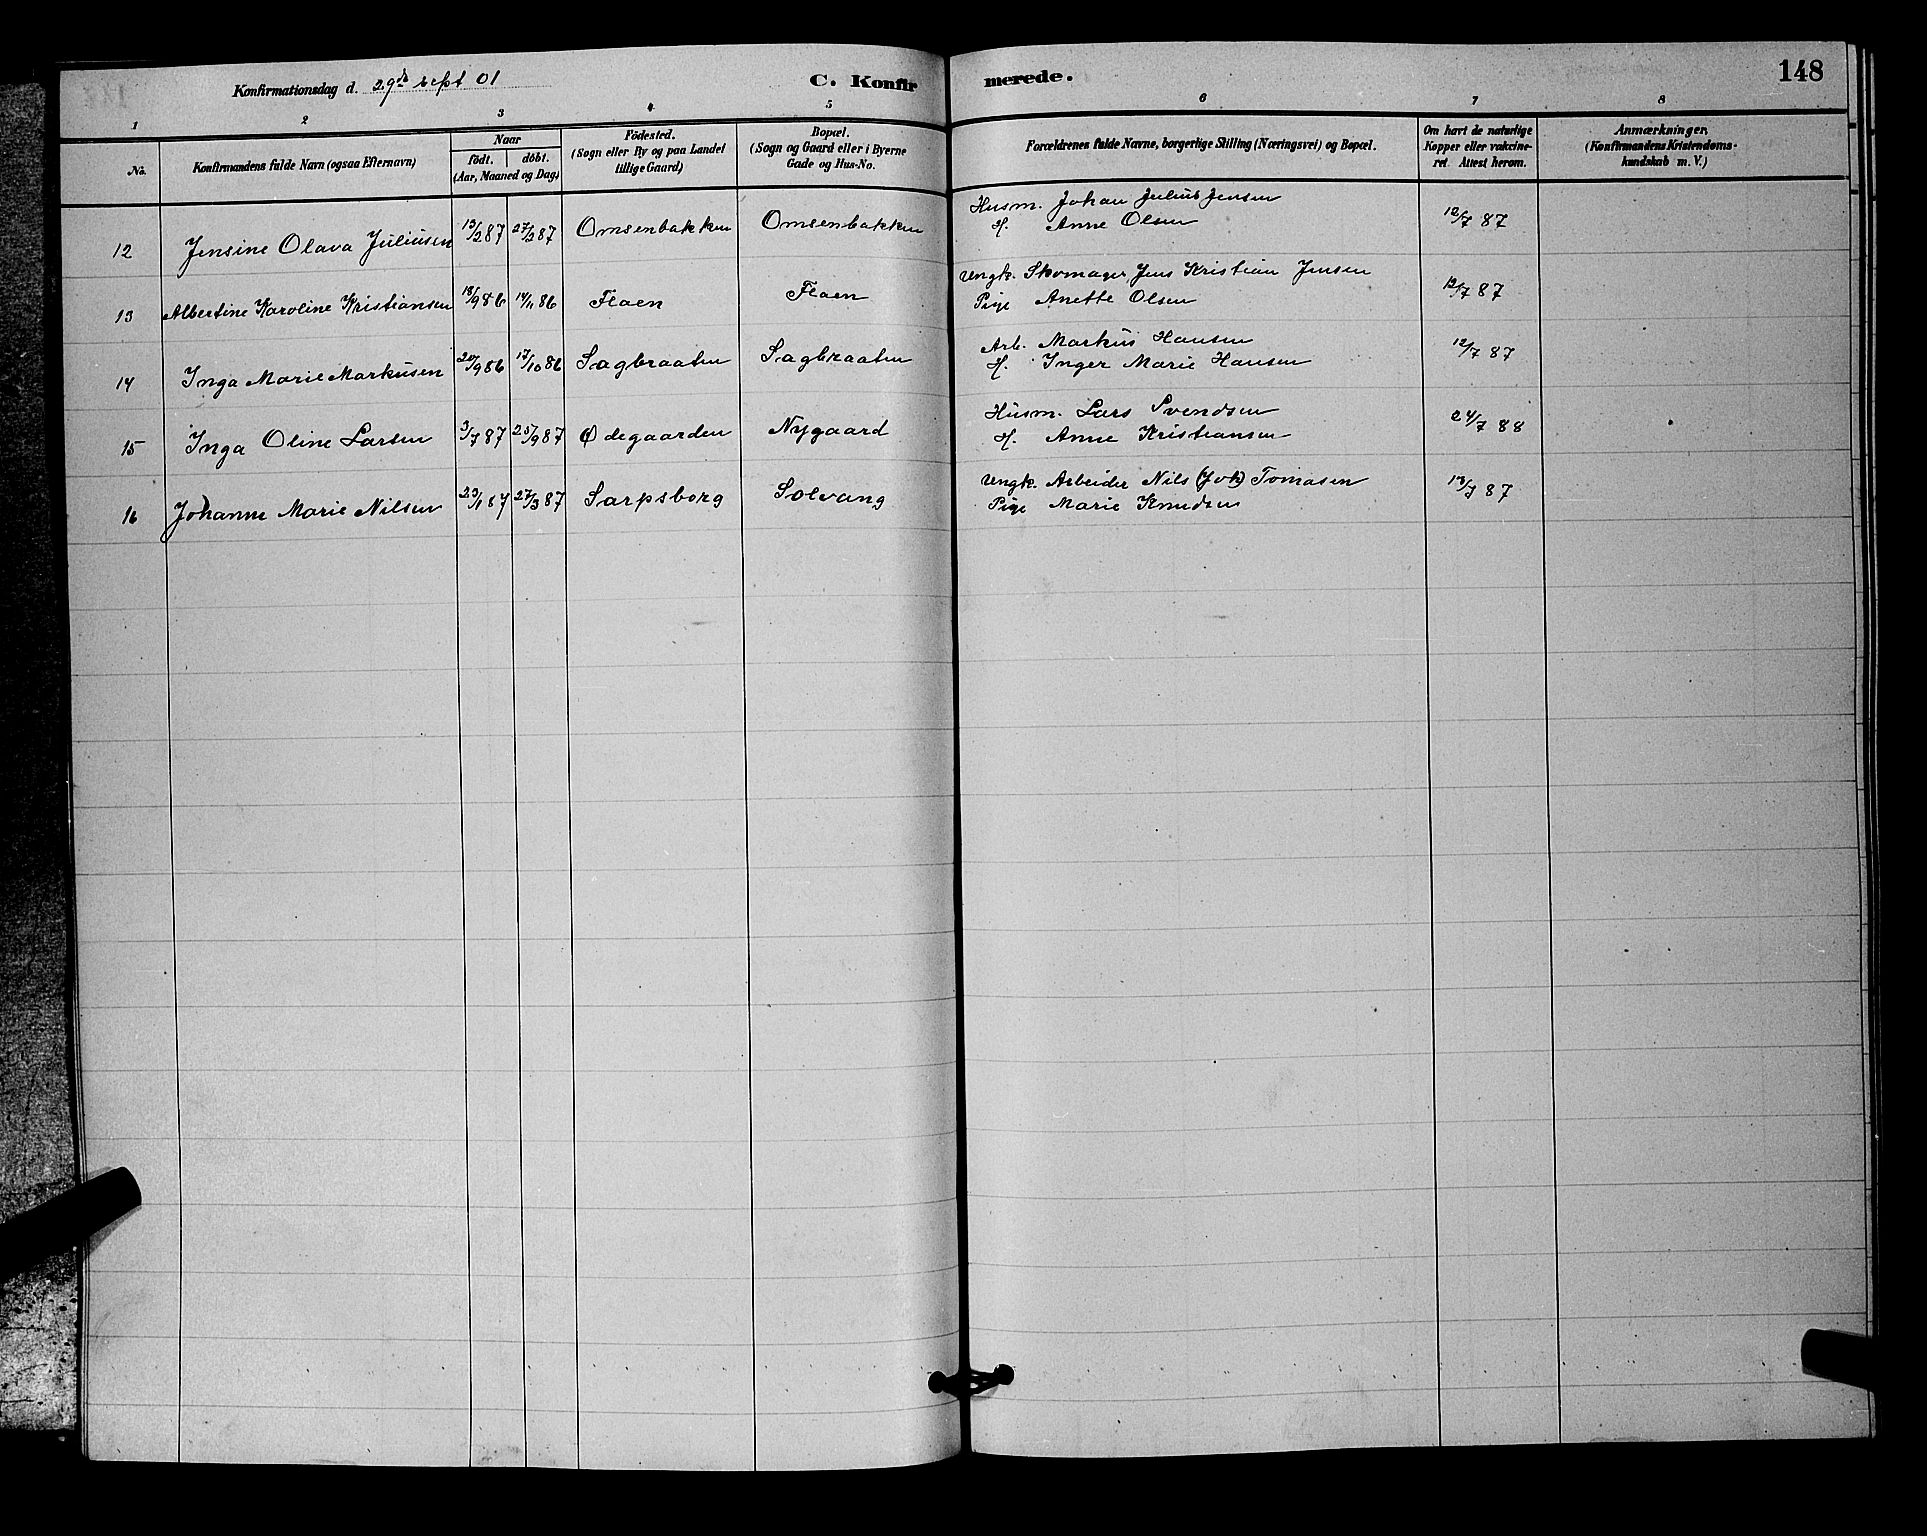 148
Konfirmationsdag d. 29de sept 01
C. Konfirmerede.
1 2 3 4 5 6 7 8
No.
Konfirmandens fulde Navn (ogsaa Efternavn)
Naar
født. døbt.
(Aar, Maaned og Dag)
Fødested.
(Sogn eller By og paa Landet
tillige Gaard)
Bopæl.
(Sogn og Gaard eller i Byerne
Gade og Hus-No.
Forældrenes fulde Navne, borgerlige Stilling (Næringsvei) og Bopæl.
Om havt de naturlige
Kopper eller vakcine-
ret. Attest herom.
Anmærkninger.
(Konfirmandens Kristendoms-
kundskab m. V.)
12 Jensine Olava Juliusen 13/2 87 27/3 87 Omsenbakken Omsenbakken Husm. Johan Julius Jensen 12/7 87
H. Anne Olsen
13 Albertine Karoline Kristiansen 18/9 86 14/11 86 Flaen Flaen Ungk. Skomager Jens Kristian Jensen 12/7 87
Pige Anette Olsen
14 Inga Marie Markusen 20/9 86 17/10 86 Sagbraaten Sagbraaten Arb. Markus Hansen 12/7 87
H. Inger Marie Hansen
15 Inga Oline Larsen 3/7 87 25/9 87 Ødegaarden Nygaard Husm. Lars Svendsen 24/7 88
H. Anne Kristiansen
16 Johanne Marie Nilsen 23/1 87 27/3 87 Sarpsborg Solvang Ungk. Arbeider Nils (Joh) Tomasen 13/7 87
Pige Marie Knudsen